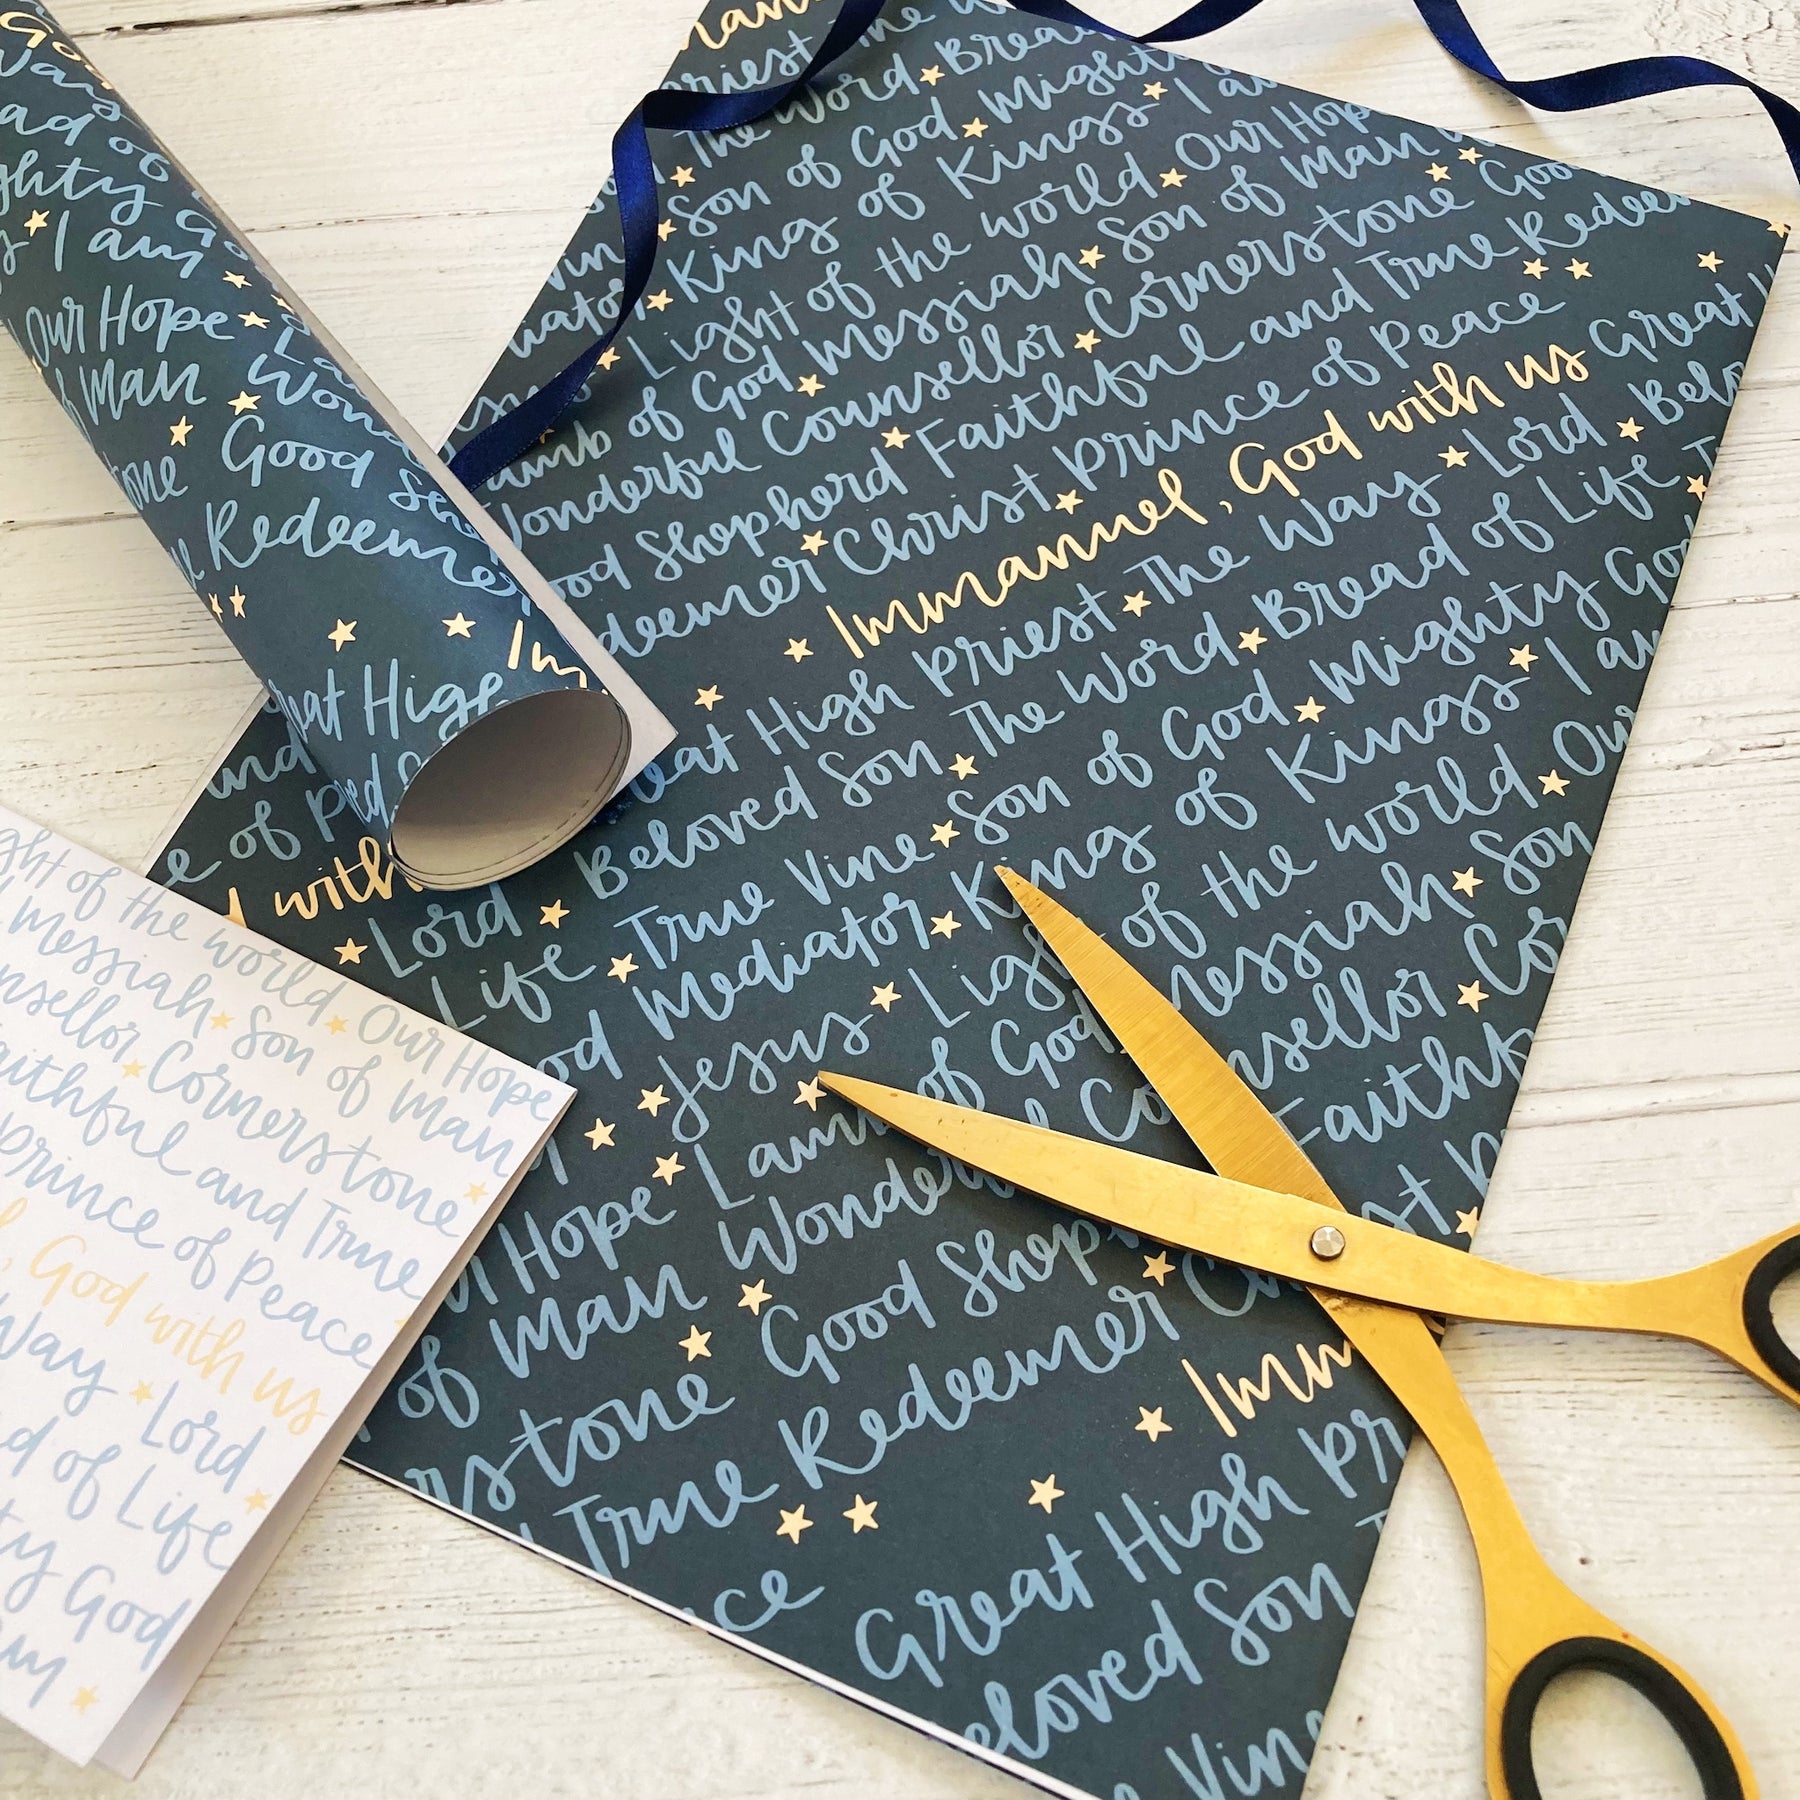 Imman
Priest The W
The Word Bread
Son of God Mighty
King of Kings I am
Light of the world Our Hope
Lamb of God Messiah Son of Man
Wonderful Counsellor Cornerstone Good
Good Shepherd Faithful and True Redeem
deemer Christ Prince of Peace
Immanuel, God with us
Great High Priest The Way Lord Bel
Beloved Son The Word Bread of Life
True Vine Son of God Mighty God
Mediator King of Kings I am
Jesus Light of the world Our
Lamb of God Messiah Son
Hope Wonderful Counsellor Cor
of Man Good Shep Faithf
rstone
True Redeemer
Imm
Great High Pr
eloved Son
Vine
Great H
Way
ad of
ghty G
I am
Our Hope
of Man
Good She
one
Redeeme
Im
eat High
and
of
d with
Lord
Life
ght of the world Our Hope
Messiah Son of Man
nsellor Cornerstone
aithful and True
Prince of Peace
God with us
Way Lord
d of Life
ty God
am